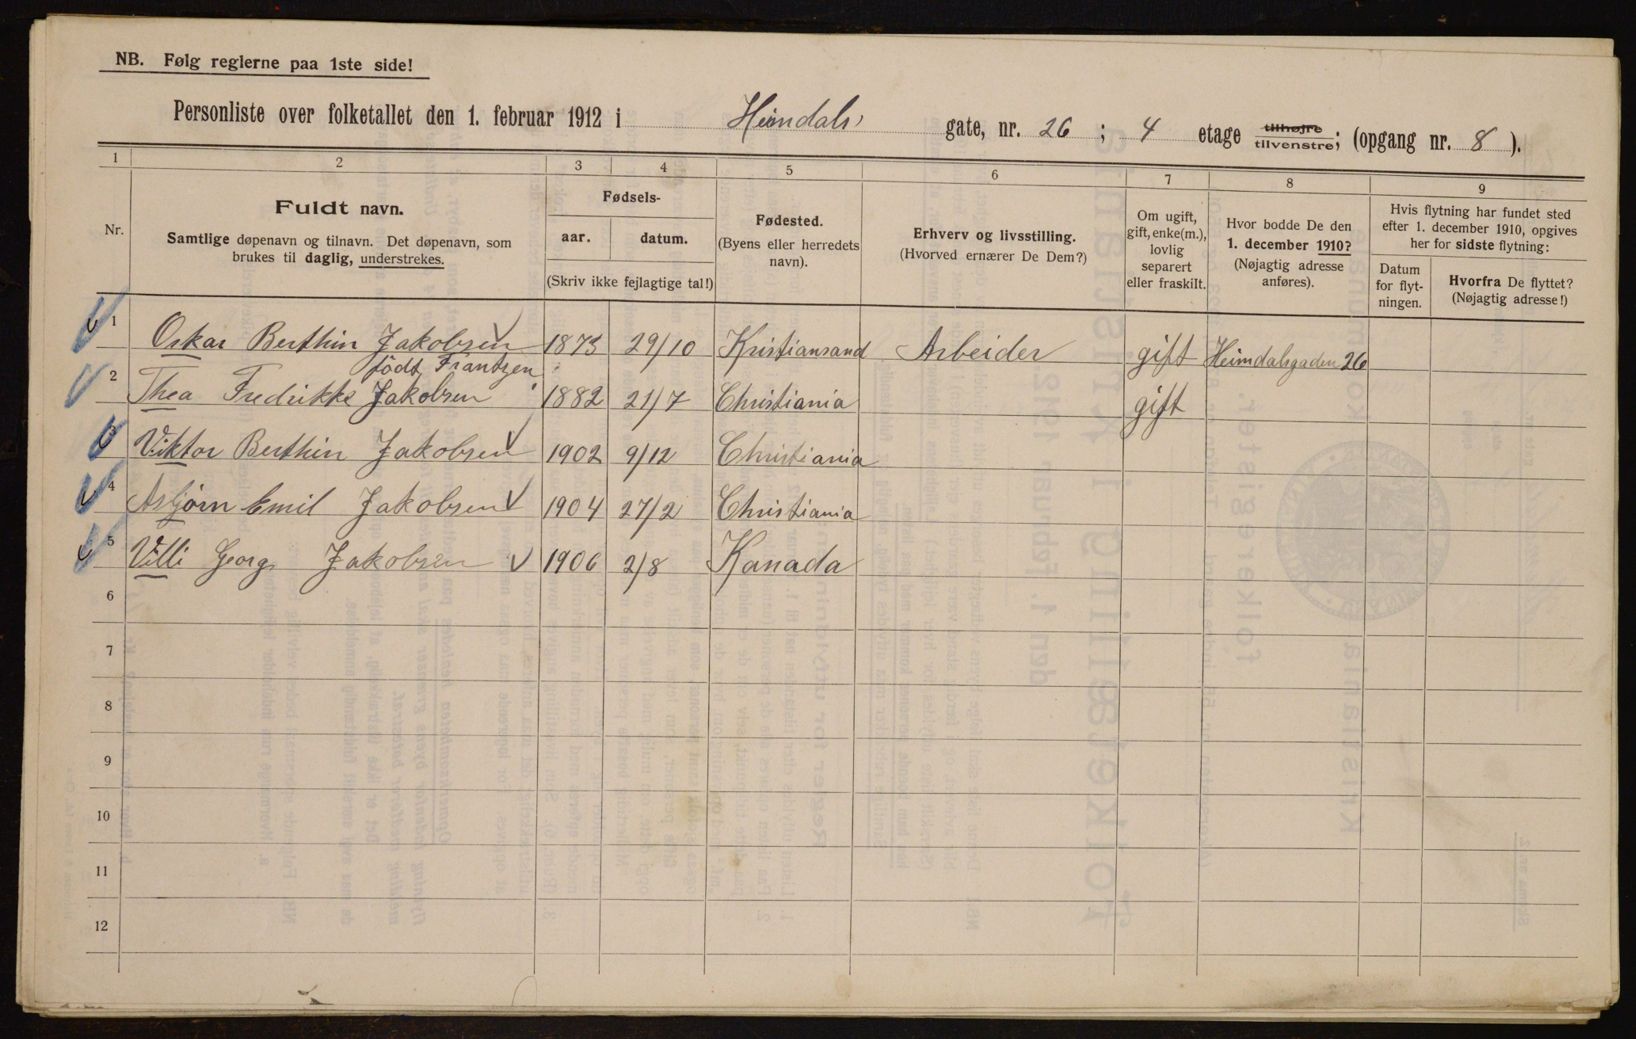 NB. Følg reglerne paa 1ste side!
Personliste over folketallet den 1. februar 1912 i Heimdals gate, nr. 26 ; 4 etage tilhøjre tilvenstre; (opgang nr. 8 ).
1 2 3 4 5 6 7 8 9
Nr.
Fuldt navn.
Samtlige døpenavn og tilnavn. Det døpenavn, som
brukes til daglig, understrekes.
Fødsels-
aar. datum.
(Skriv ikke fejlagtige tal!)
Fødested.
(Byens eller herredets
navn).
Erhverv og livsstilling.
(Hvorved ernærer De Dem?)
Om ugift,
gift, enke(m.),
lovlig
separert
eller fraskilt.
Hvor bodde De den
1. december 1910?
(Nøjagtig adresse
anføres).
Hvis flytning har fundet sted
efter 1. december 1910, opgives
her for sidste flytning:
Datum
for flyt-
ningen.
Hvorfra De flyttet?
(Nøjagtig adresse!)
1 Oskar Berthin Jakobsen 1873 29/10 Kristiansand Arbeider gift Heimdalsgaden 26
født Frantzen
2 Thea Fredrikke Jakobsen 1882 21/7 Christiania gift
3 Viktor Berthin Jakobsen 1902 9/12 Christiania
4 Asbjørn Emil Jakobsen 1904 27/2 Christiania
5 Villi Georg Jakobsen 1906 2/8 Kanada
6
7
8
9
10
11
12